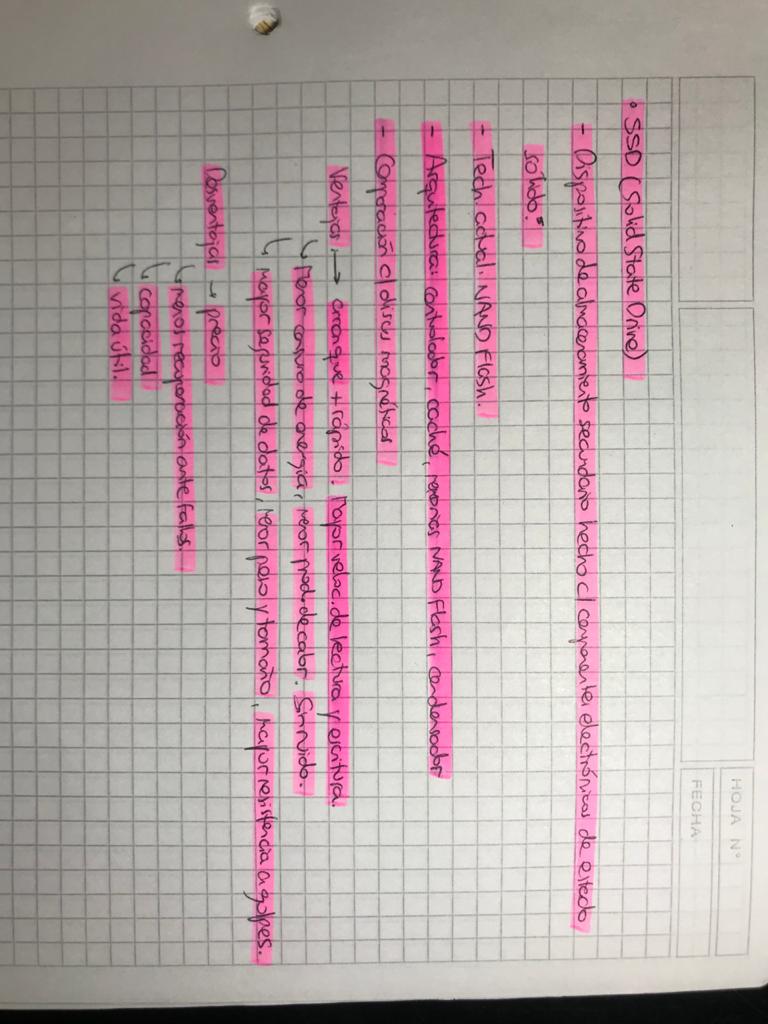 HOJA N°
FECHA
• SSD (Solid State Drive)
- Dispositivo de almacenamiento secundario hecho c/ componentes electrónicos de estado
sólido.
- Tech actual: NAND Flash.
- Arquitectura: controlador, caché, memorias NAND Flash, condensador
- Comparación c/ discos magnéticos
Ventajas → arranque + rápido. Mayor veloc. de lectura y escritura.
↳ Menor consumo de energía, menor prod. de calor. Sin ruido.
↳ Mayor seguridad de datos, menor peso y tamaño, mayor resistencia a golpes.
Desventajas → precio
↳ menos recuperación ante fallos.
↳ capacidad
↳ vida útil.